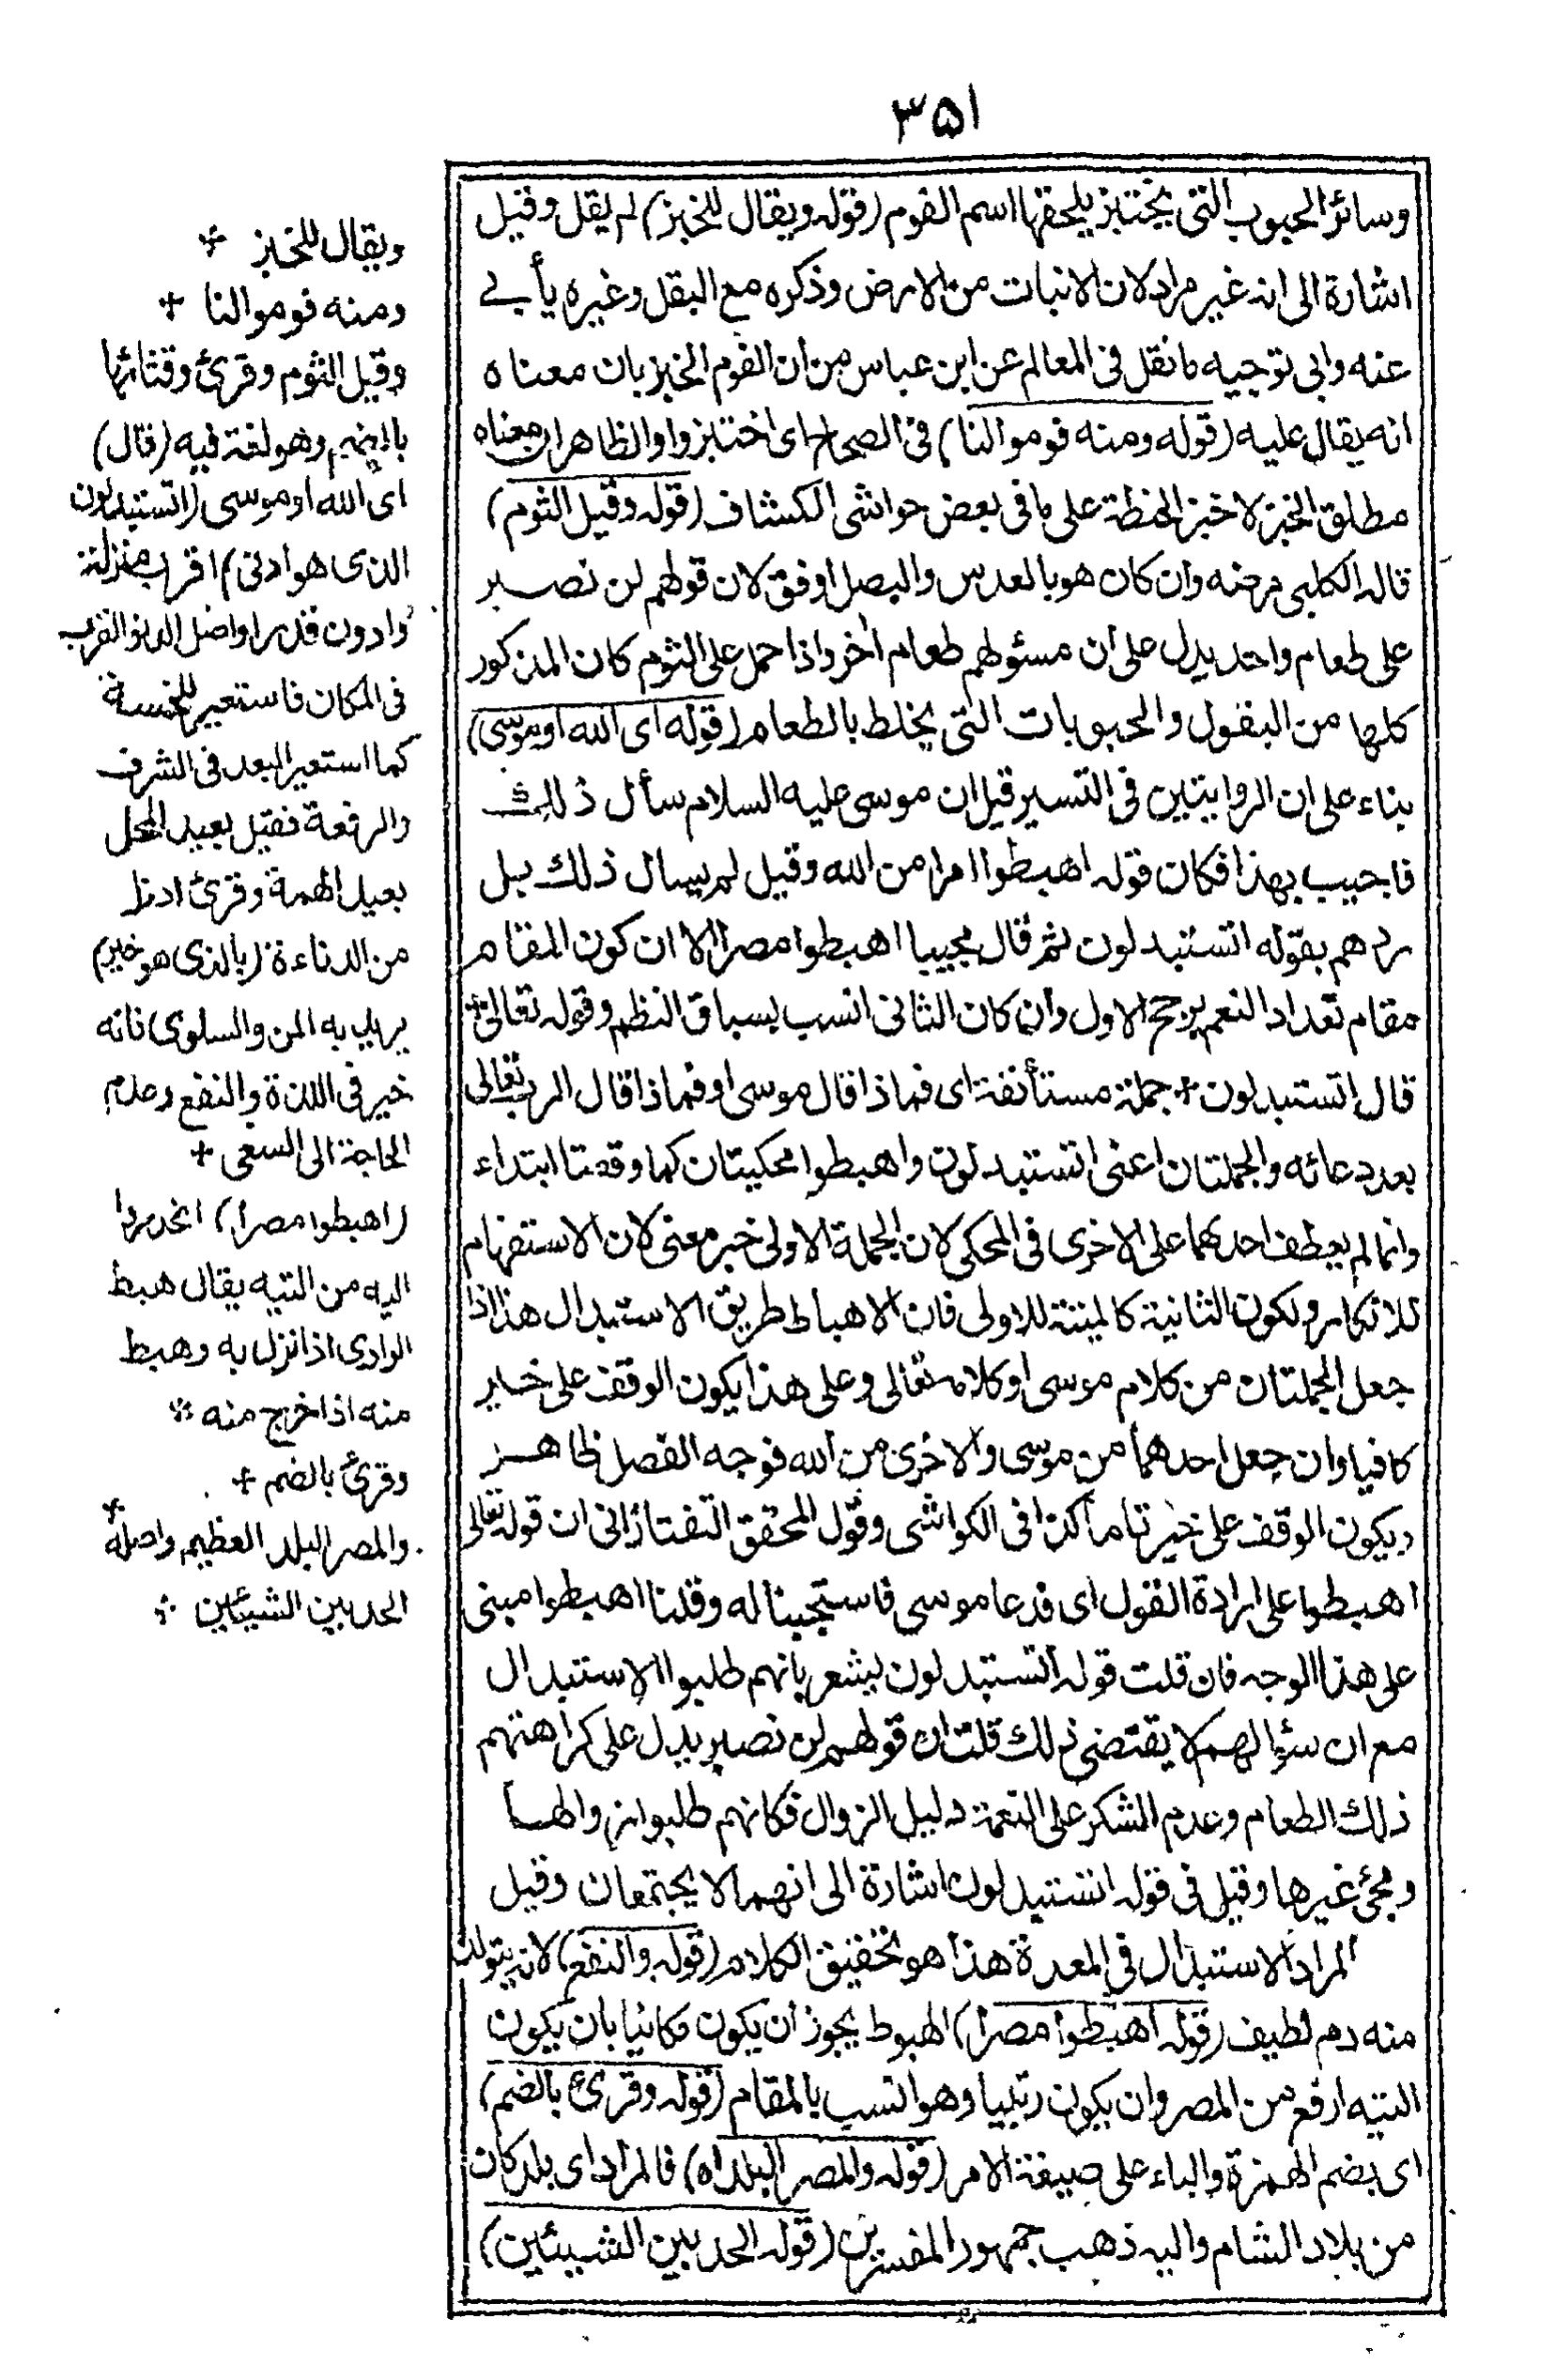 ٣٥١
وسائر الحبوب التى يختبز يلحقها اسم الفوم (قوله ويقال للخبز) لم يقل وقيل
اشارة الى انه غير مراد لان الانبات من الارض وذكره مع البقل وغيره يأبى
عنه وابى توجيه ما نقل فى المعالم عن ابن عباس من ان الفوم الخبز بان معناه
انه يقال عليه (قوله ومنه فوموا لنا) فى الصحاح اى اختبزوا والظاهر ان معناه
مطلق الخبز لا خبز الحنطة على ما فى بعض حواشى الكشاف (قوله وقيل الثوم)
قاله الكلبى مرضه وان كان هو بالعدس والبصل اوفق لان قولهم لن نصبر
على طعام واحد يدل على ان مسئولهم طعام اخر واذا حمل على الثوم كان المذكور
كلها من البقول والحبوبات التى يخلط بالطعام (قوله اى الله او موسى)
بناء على ان الروايتين فى التسير قيل ان موسى عليه السلام سأل ذلك
فاجيب بهذا فكان قوله اهبطوا امرا من الله وقيل لم يسال ذلك بل
ردهم بقوله اتستبدلون ثم قال مجيبا اهبطوا مصرا الا ان كون المقام
مقام تعداد النعم يرجح الاول وان كان الثانى انسب بسباق النظم وقوله تعالى +
قال اتستبدلون + جملة مستأنفة اى فماذا قال موسى او فماذا قال الرب تعالى
بعد دعائه والجملتان اعنى اتستبدلون واهبطوا محكيتان كما وقعتا ابتداء
وانما لم يعطف احدهما على الاخرى فى المحكى لان الجملة الاولى خبر معنى لان الاستفهام
للانكار ولكون الثانية كالمبينة للاولى فان الاهباط طريق الاستبدال هذا اذا
جعل الجملتان من كلام موسى او كلامه تعالى وعلى هذا يكون الوقف على خير
كافيا وان جعل احدهما من موسى والاخرى من الله فوجه الفصل ظاهر
ويكون الوقف على خير تاما كذا فى الكواشى وقول المحقق التفتازانى ان قوله تعالى
اهبطوا على ارادة القول اى فدعا موسى فاستجبنا له وقلنا اهبطوا مبنى
على هذا الوجه فان قلت قوله اتستبدلون يشعر بانهم طلبوا الاستبدال
مع ان سؤالهم لا يقتضى ذلك قلت ان قولهم لن نصبر يدل على كراهتهم
ذلك الطعام وعدم الشكر على النعمة دليل الزوال فكانهم طلبوا زوالها
ومجئ غيرها وقيل فى قوله اتستبدلون اشارة الى انهما لا يجتمعان وقيل
المراد الاستبدال فى المعدة هذا هو تحقيق الكلام (قوله والنفع) لانه يتولد
منه دم لطيف (قوله اهبطوا مصرا) الهبوط يجوز ان يكون مكانيا بان يكون
التيه ارفع من المصر وان يكون رتبيا وهو انسب بالمقام (قوله وقرئ بالضم)
اى بضم الهمزة والباء على صيغة الامر (قوله والمصر البلد اه) فالمراد اى بلد كان
من بلاد الشام واليه ذهب جمهور المفسرين (قوله الحد بين الشيئين)
ويقال للخبز +
ومنه فوموا لنا +
وقيل الثوم وقرئ وقثائها
بالضم وهو لغة فيه (قال)
اى الله او موسى (اتستبدلون
الذى هو ادنى) اقرب منزلة
وادون قدرا واصل الدنو القرب
فى المكان فاستعير للخسة
كما استعير البعد فى الشرف
والرفعة فقيل بعيد المحل
بعيد الهمة وقرئ ادنأ
من الدناءة (بالذى هو خير)
يريد به المن والسلوى فانه
خير فى اللذة والنفع وعدم
الحاجة الى السعى +
(اهبطوا مصرا) انحدروا
اليه من التيه يقال هبط
الوادى اذا نزل به وهبط
منه اذا خرج منه *
وقرئ بالضم +
والمصر البلد العظيم واصله +
الحد بين الشيئين +